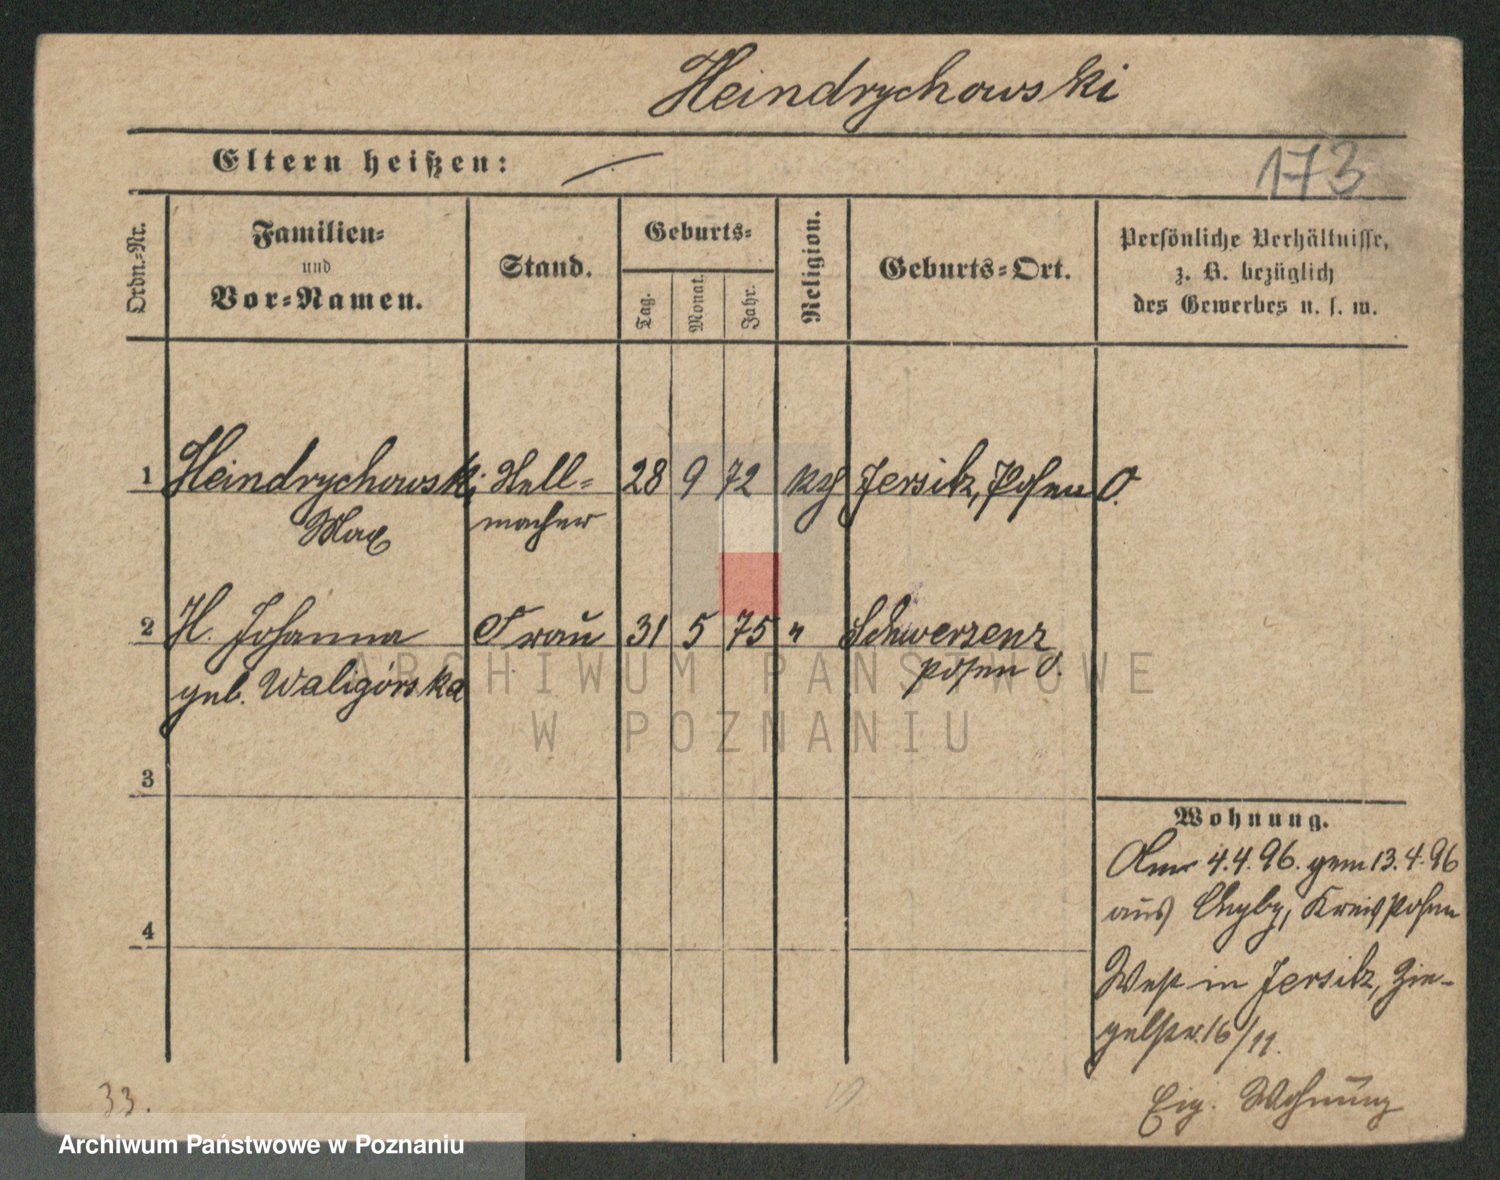 Heindrychowski
Eltern heißen: —
173
Ordn.-Nr.
Familien-
und
Vor-Namen.
Stand.
Geburts-
Tag.
Monat.
Jahr.
Religion.
Geburts-Ort.
Persönliche Verhältnisse,
z. B. bezüglich
des Gewerbes u. s. w.
1 Heindrychowski Stell- 28 9 72 kth Jersitz, Posen O.
Max macher
2 H. Johanna Frau 31 5 75 " Schwersenz
geb. Waligórska Posen O.
3
4
Wohnung.
4.4.96. gem 13.4.96
aus Chyby, Kreis Posen
in Jersitz, Zie-
gelstr. 16/11.
Eig. Wohnung
33.
ARCHIWUM PAŃSTWOWE
W POZNANIU
Archiwum Państwowe w Poznaniu